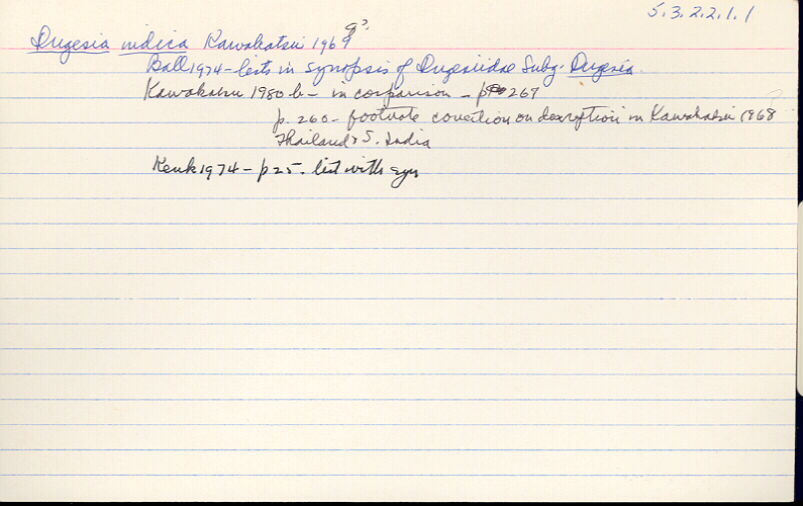 5.3.2.2.1.1
9?
Dugesia indica Kawakatsu 1969
Ball 1974 - lists in synopsis of Dugesiidae Subg. Dugesia.
Kawakatsu 1980 b - in comparison - p 269
p. 260 - footnote correction on description in Kawakatsu 1968
Thailand & S. India
Kenk 1974 - p 25. list with syn